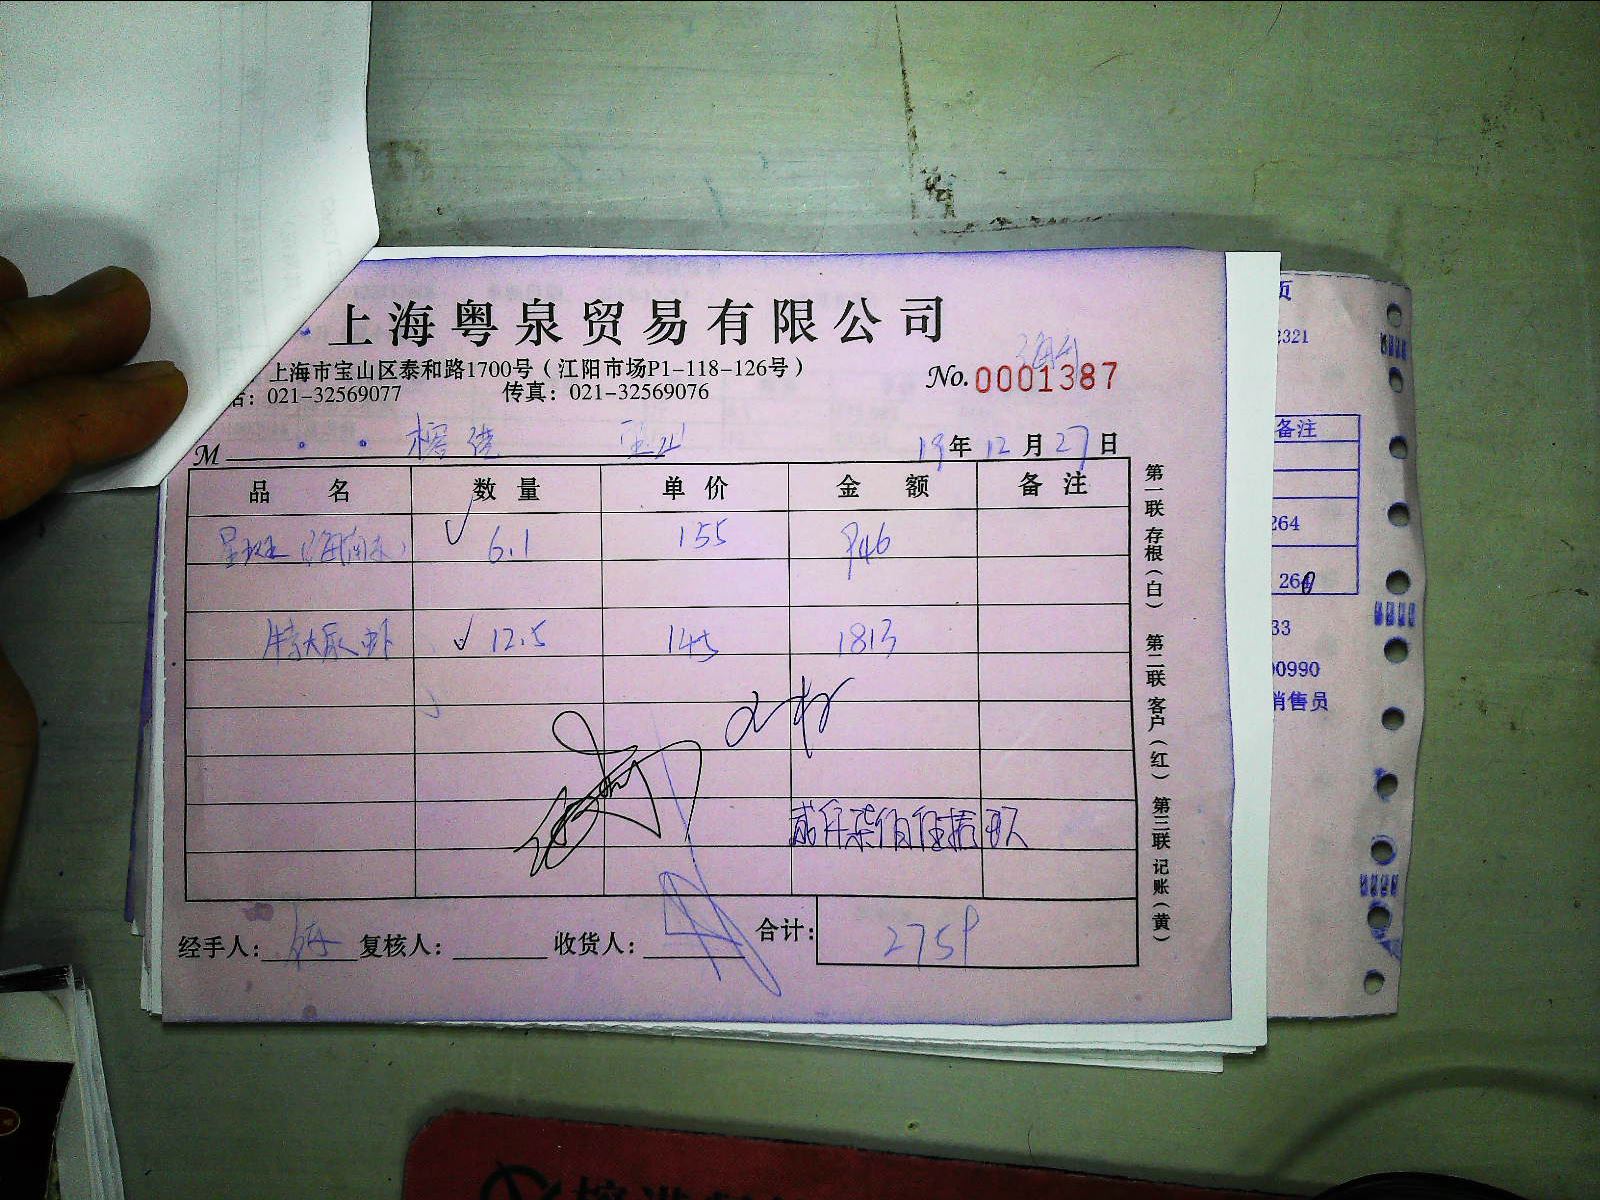 上海粤泉贸易有限公司
上海市宝山区泰和路1700号（江阳市场P1-118-126号）
话：021-32569077 传真：021-32569076
No. 0001387
M 榕港 宝山 19年12月27日
品名 数量 单价 金额 备注
星斑（海南 6.1 155 946
特大 虾 12.5 145 1813
贰仟柒佰伍拾玖
经手人： 复核人： 收货人： 合计： 2759
第一联 存根（白） 第二联 客户（红） 第三联 记账（黄）
页
2321
备注
264
264
33
00990
销售员